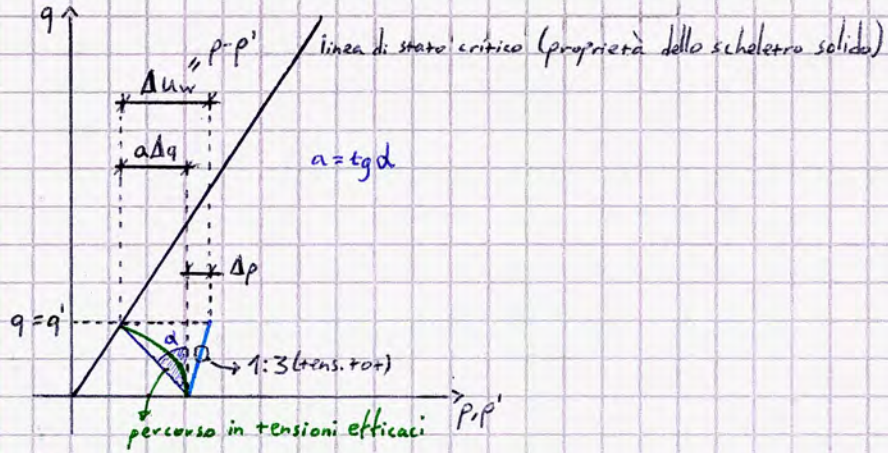 q
" p-p'
linea di stato critico (proprietà dello scheletro solido)
Δuw
aΔq
a = tg α
Δp
q = q'
α
1:3 (tens. tot)
p,p'
percorso in tensioni efficaci